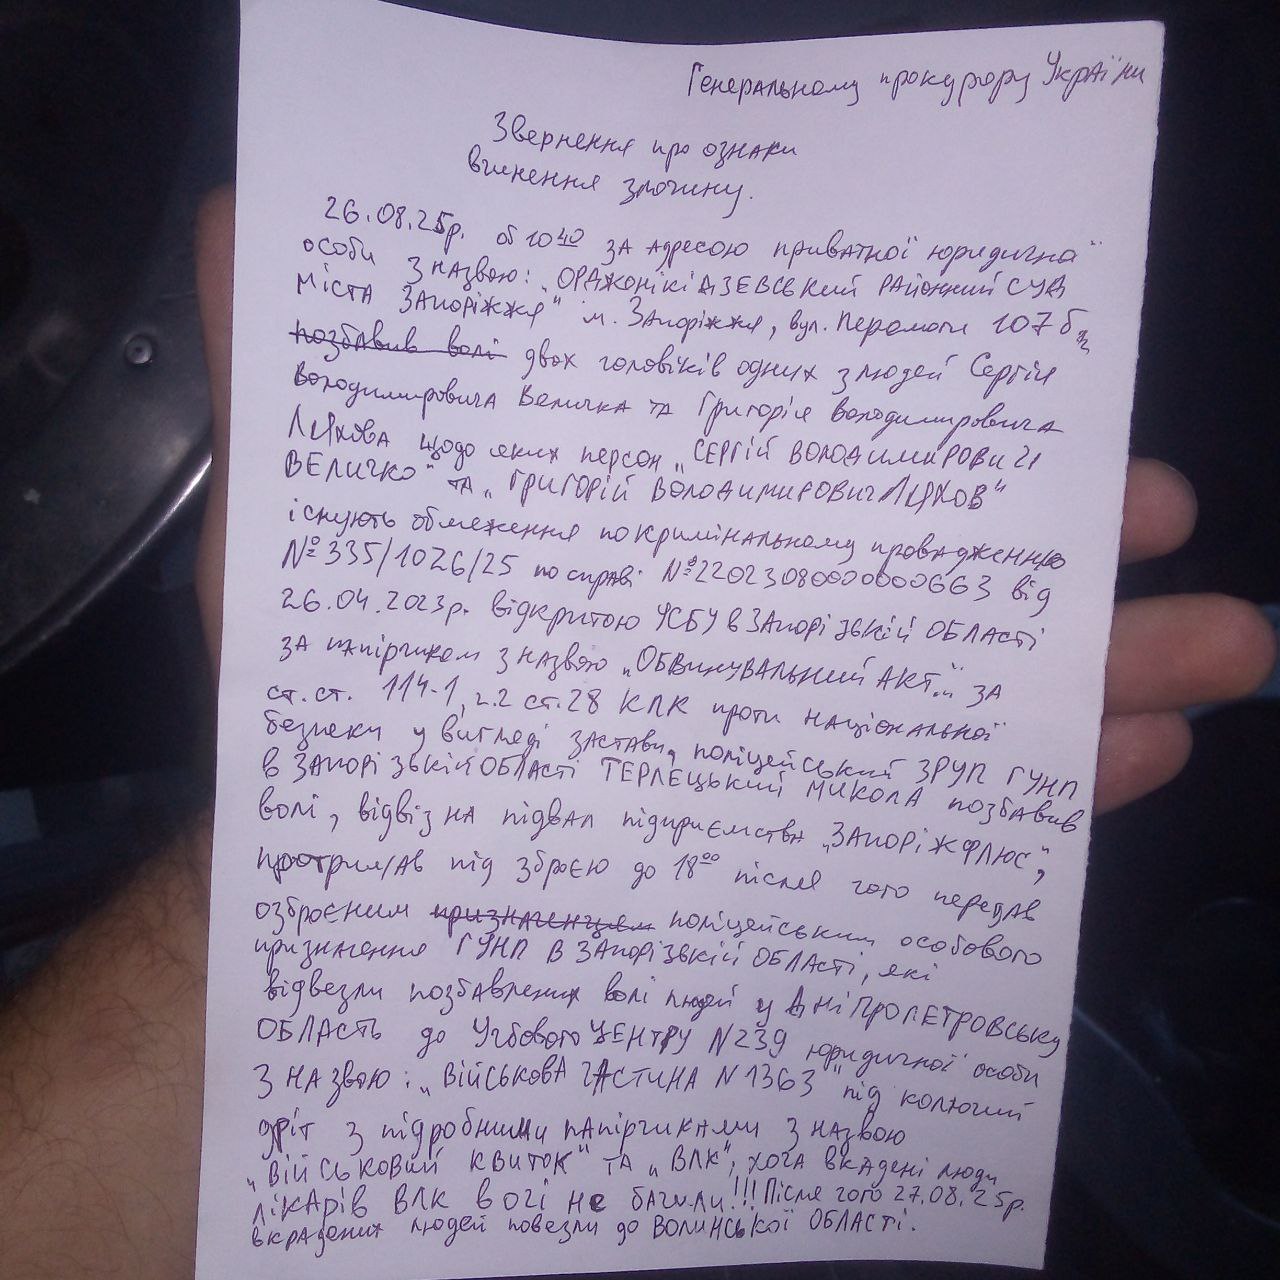 Генеральному прокурору України
Звернення про ознаки
вчинення злочину.
26.08.25р. об 10 40 за адресою приватної юридичної
особи з назвою: „ОРДЖОНІКІДЗЕВСЬКИЙ РАЙОННИЙ СУД
МІСТА ЗАПОРІЖЖЯ" м. Запоріжжя, вул. Перемоги 107 б
позбавив волі двох чоловіків одних з людей Сергія
Володимировича Величка та Григорія Володимировича
Ляхова щодо яких персон „СЕРГІЙ ВОЛОДИМИРОВИЧ
ВЕЛИЧКО" та „ГРИГОРІЙ ВОЛОДИМИРОВИЧ ЛЯХОВ"
існують обмеження по кримінальному провадженню
№ 335/1026/25 по справі №22023080000000663 від
26.04.2023р. відкритою УСБУ в ЗАПОРІЗЬКІЙ ОБЛАСТІ
за папірчиком з назвою „ОБВИНУВАЛЬНИЙ АКТ.." за
ст.ст. 114-1, ч.2 ст.28 КПК проти національної
безпеки у вигляді застави, поліцейський ЗРУП ГУНП
в ЗАПОРІЗЬКІЙ ОБЛАСТІ ТЕРЛЕЦЬКИЙ МИКОЛА позбавив
волі, відвіз на підвал підприємства „ЗАПОРІЖФЛЮС",
протримав під зброєю до 18 00 після чого передав
озброєним призначенцям поліцейським особового
призначення ГУНП В ЗАПОРІЗЬКІЙ ОБЛАСТІ, які
відвезли позбавлених волі людей у ДНІПРОПЕТРОВСЬКУ
ОБЛАСТЬ до Учбового ЦЕНТРУ N239 юридичної особи
з назвою: „ВІЙСЬКОВА ЧАСТИНА N 1363" під колючий
дріт з підробними папірчиками з назвою
„ВІЙСЬКОВИЙ КВИТОК" та „ВЛК", хоча вкадені люди
лікарів ВЛК в очі не бачили!!! Після чого 27.08.25р.
вкрадених людей повезли до ВОЛИНСЬКОЇ ОБЛАСТІ.